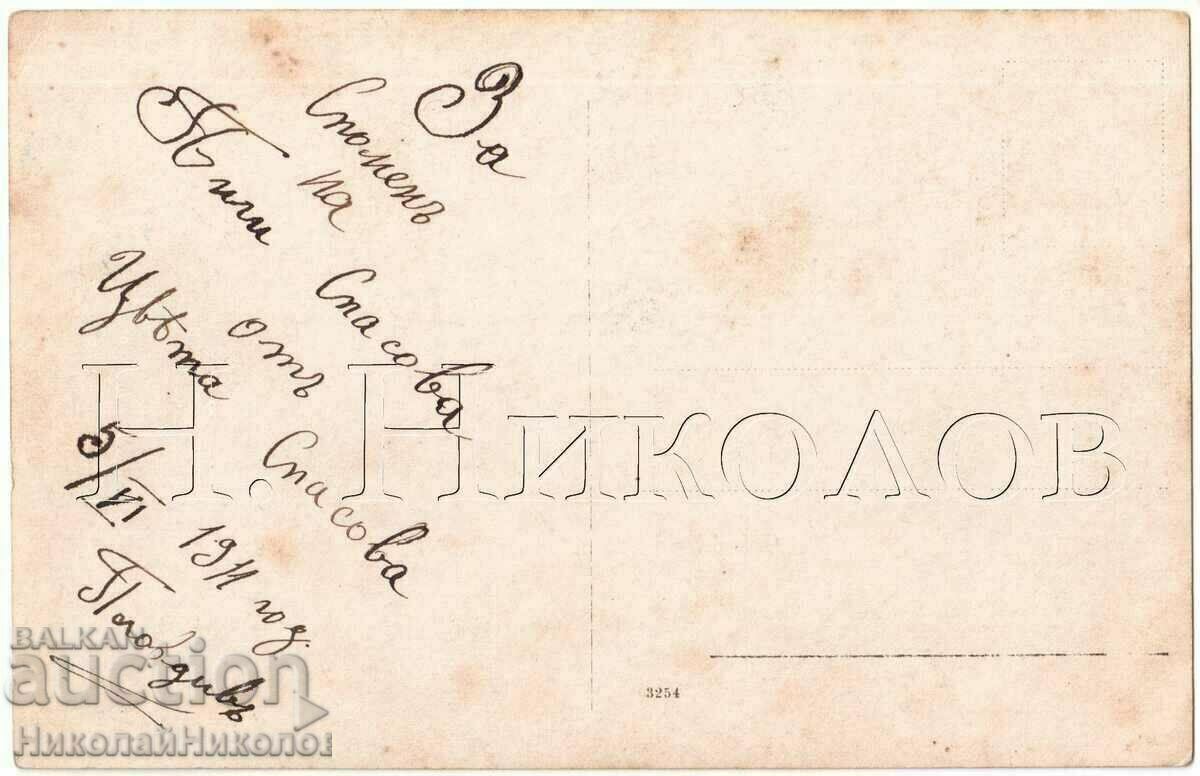 За
Споменъ
на
Пили Спасова
отъ
Цвѣта Спасова
5/VI 1911 год.
Пловдивъ
Н. Николов
3254
BALKAN
auction
НиколайНиколов